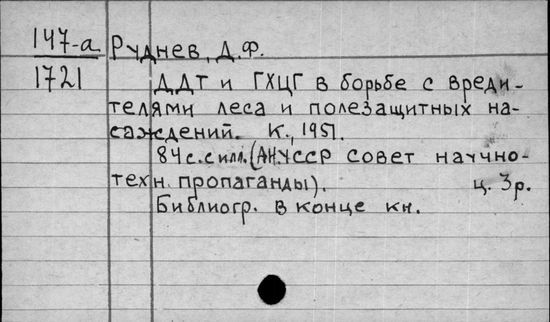 147-а Руднев, Д.Ф.
1721 ДДТ и ГХЦГ в борьбе с вреди-
телями леса и полезащитных на-
саждений. К., 1951.
84с. с илл. (АН УССР совет научно-
техн. пропаганды). ц. 3р.
Библиогр. в конце кн.